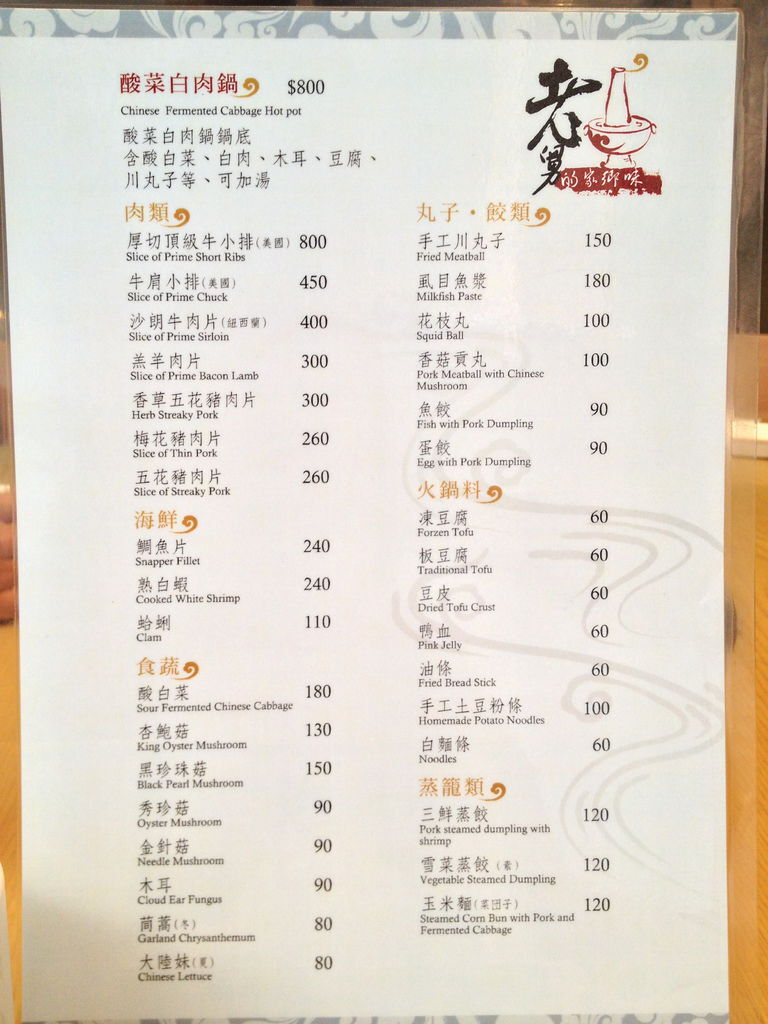 酸菜白肉鍋 $800
Chinese Fermented Cabbage Hot pot
酸菜白肉鍋鍋底
含酸白菜、白肉、木耳、豆腐、
川丸子等、可加湯
老舅
的家鄉味
肉類
厚切頂級牛小排(美國) 800
Slice of Prime Short Ribs
牛肩小排(美國) 450
Slice of Prime Chuck
沙朗牛肉片(紐西蘭) 400
Slice of Prime Sirloin
羔羊肉片 300
Slice of Prime Bacon Lamb
香草五花豬肉片 300
Herb Streaky Pork
梅花豬肉片 260
Slice of Thin Pork
五花豬肉片 260
Slice of Streaky Pork
海鮮
鯛魚片 240
Snapper Fillet
熟白蝦 240
Cooked White Shrimp
蛤蜊 110
Clam
食蔬
酸白菜 180
Sour Fermented Chinese Cabbage
杏鮑菇 130
King Oyster Mushroom
黑珍珠菇 150
Black Pearl Mushroom
秀珍菇 90
Oyster Mushroom
金針菇 90
Needle Mushroom
木耳 90
Cloud Ear Fungus
茼蒿(冬) 80
Garland Chrysanthemum
大陸妹(夏) 80
Chinese Lettuce
丸子・餃類
手工川丸子 150
Fried Meatball
虱目魚漿 180
Milkfish Paste
花枝丸 100
Squid Ball
香菇貢丸 100
Pork Meatball with Chinese
Mushroom
魚餃 90
Fish with Pork Dumpling
蛋餃 90
Egg with Pork Dumpling
火鍋料
凍豆腐 60
Forzen Tofu
板豆腐 60
Traditional Tofu
豆皮 60
Dried Tofu Crust
鴨血 60
Pink Jelly
油條 60
Fried Bread Stick
手工土豆粉條 100
Homemade Potato Noodles
白麵條 60
Noodles
蒸籠類
三鮮蒸餃 120
Pork steamed dumpling with
shrimp
雪菜蒸餃(素) 120
Vegetable Steamed Dumpling
玉米麵(菜团子) 120
Steamed Corn Bun with Pork and
Fermented Cabbage